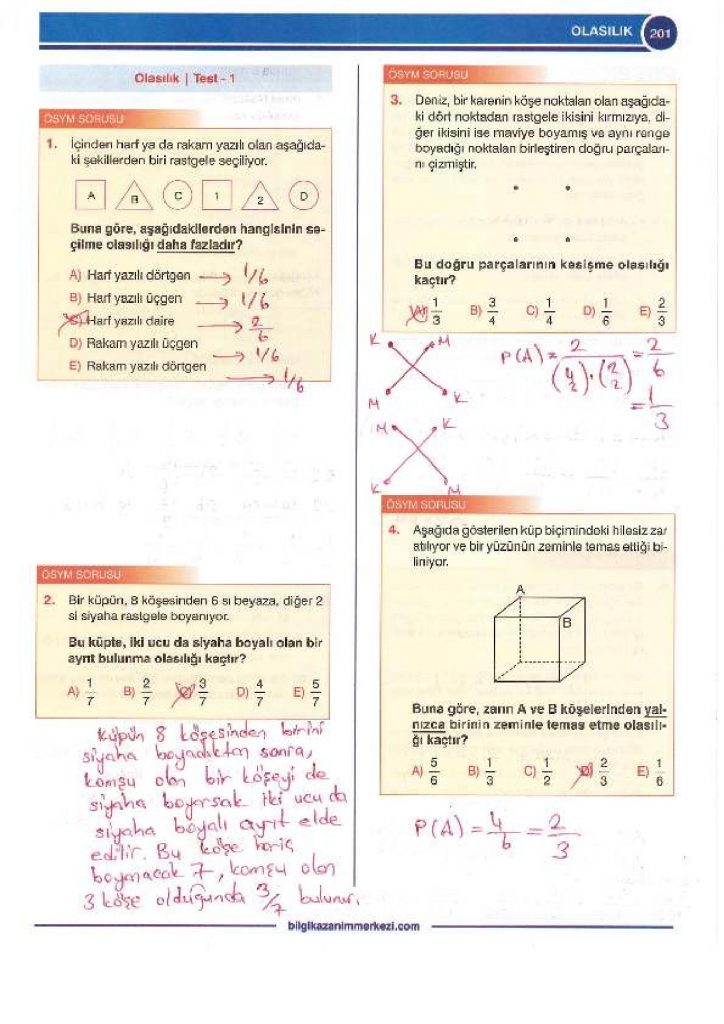 OLASILIK 201
Olasılık | Test - 1
ÖSYM SORUSU
1. İçinden harf ya da rakam yazılı olan aşağıda-
ki şekillerden biri rastgele seçiliyor.
A B C 1 2 D
Buna göre, aşağıdakilerden hangisinin se-
çilme olasılığı daha fazladır?
A) Harf yazılı dörtgen → 1/6
B) Harf yazılı üçgen → 1/6
C) Harf yazılı daire → 2/6
D) Rakam yazılı üçgen → 1/6
E) Rakam yazılı dörtgen → 1/6
ÖSYM SORUSU
2. Bir küpün, 8 köşesinden 6 sı beyaza, diğer 2
si siyaha rastgele boyanıyor.
Bu küpte, iki ucu da siyaha boyalı olan bir
ayrıt bulunma olasılığı kaçtır?
A) 1/7 B) 2/7 C) 3/7 D) 4/7 E) 5/7
Küpün 8 köşesinden birini
siyaha boyadıktan sonra,
komşu olan bir köşeyi de
siyaha boyarsak iki ucu da
siyaha boyalı ayrıt elde
edilir. Bu köşe hariç
boyanacak 7, komşu olan
3 köşe olduğunda 3/7 bulunur.
ÖSYM SORUSU
3. Deniz, bir karenin köşe noktaları olan aşağıda-
ki dört noktadan rastgele ikisini kırmızıya, di-
ğer ikisini ise maviye boyamış ve aynı renge
boyadığı noktaları birleştiren doğru parçaları-
nı çizmiştir.
Bu doğru parçalarının kesişme olasılığı
kaçtır?
A) 1/3 B) 3/4 C) 1/4 D) 1/6 E) 2/3
K M
M K
P(A) = 2/(4 2)·(2 2) = 2/6
= 1/3
M K
K M
ÖSYM SORUSU
4. Aşağıda gösterilen küp biçimindeki hilesiz zar
atılıyor ve bir yüzünün zeminle temas ettiği bi-
liniyor.
A
B
Buna göre, zarın A ve B köşelerinden yal-
nızca birinin zeminle temas etme olasılı-
ğı kaçtır?
A) 5/6 B) 1/3 C) 1/2 D) 2/3 E) 1/6
P(A) = 4/6 = 2/3
bilgikazanimmerkezi.com